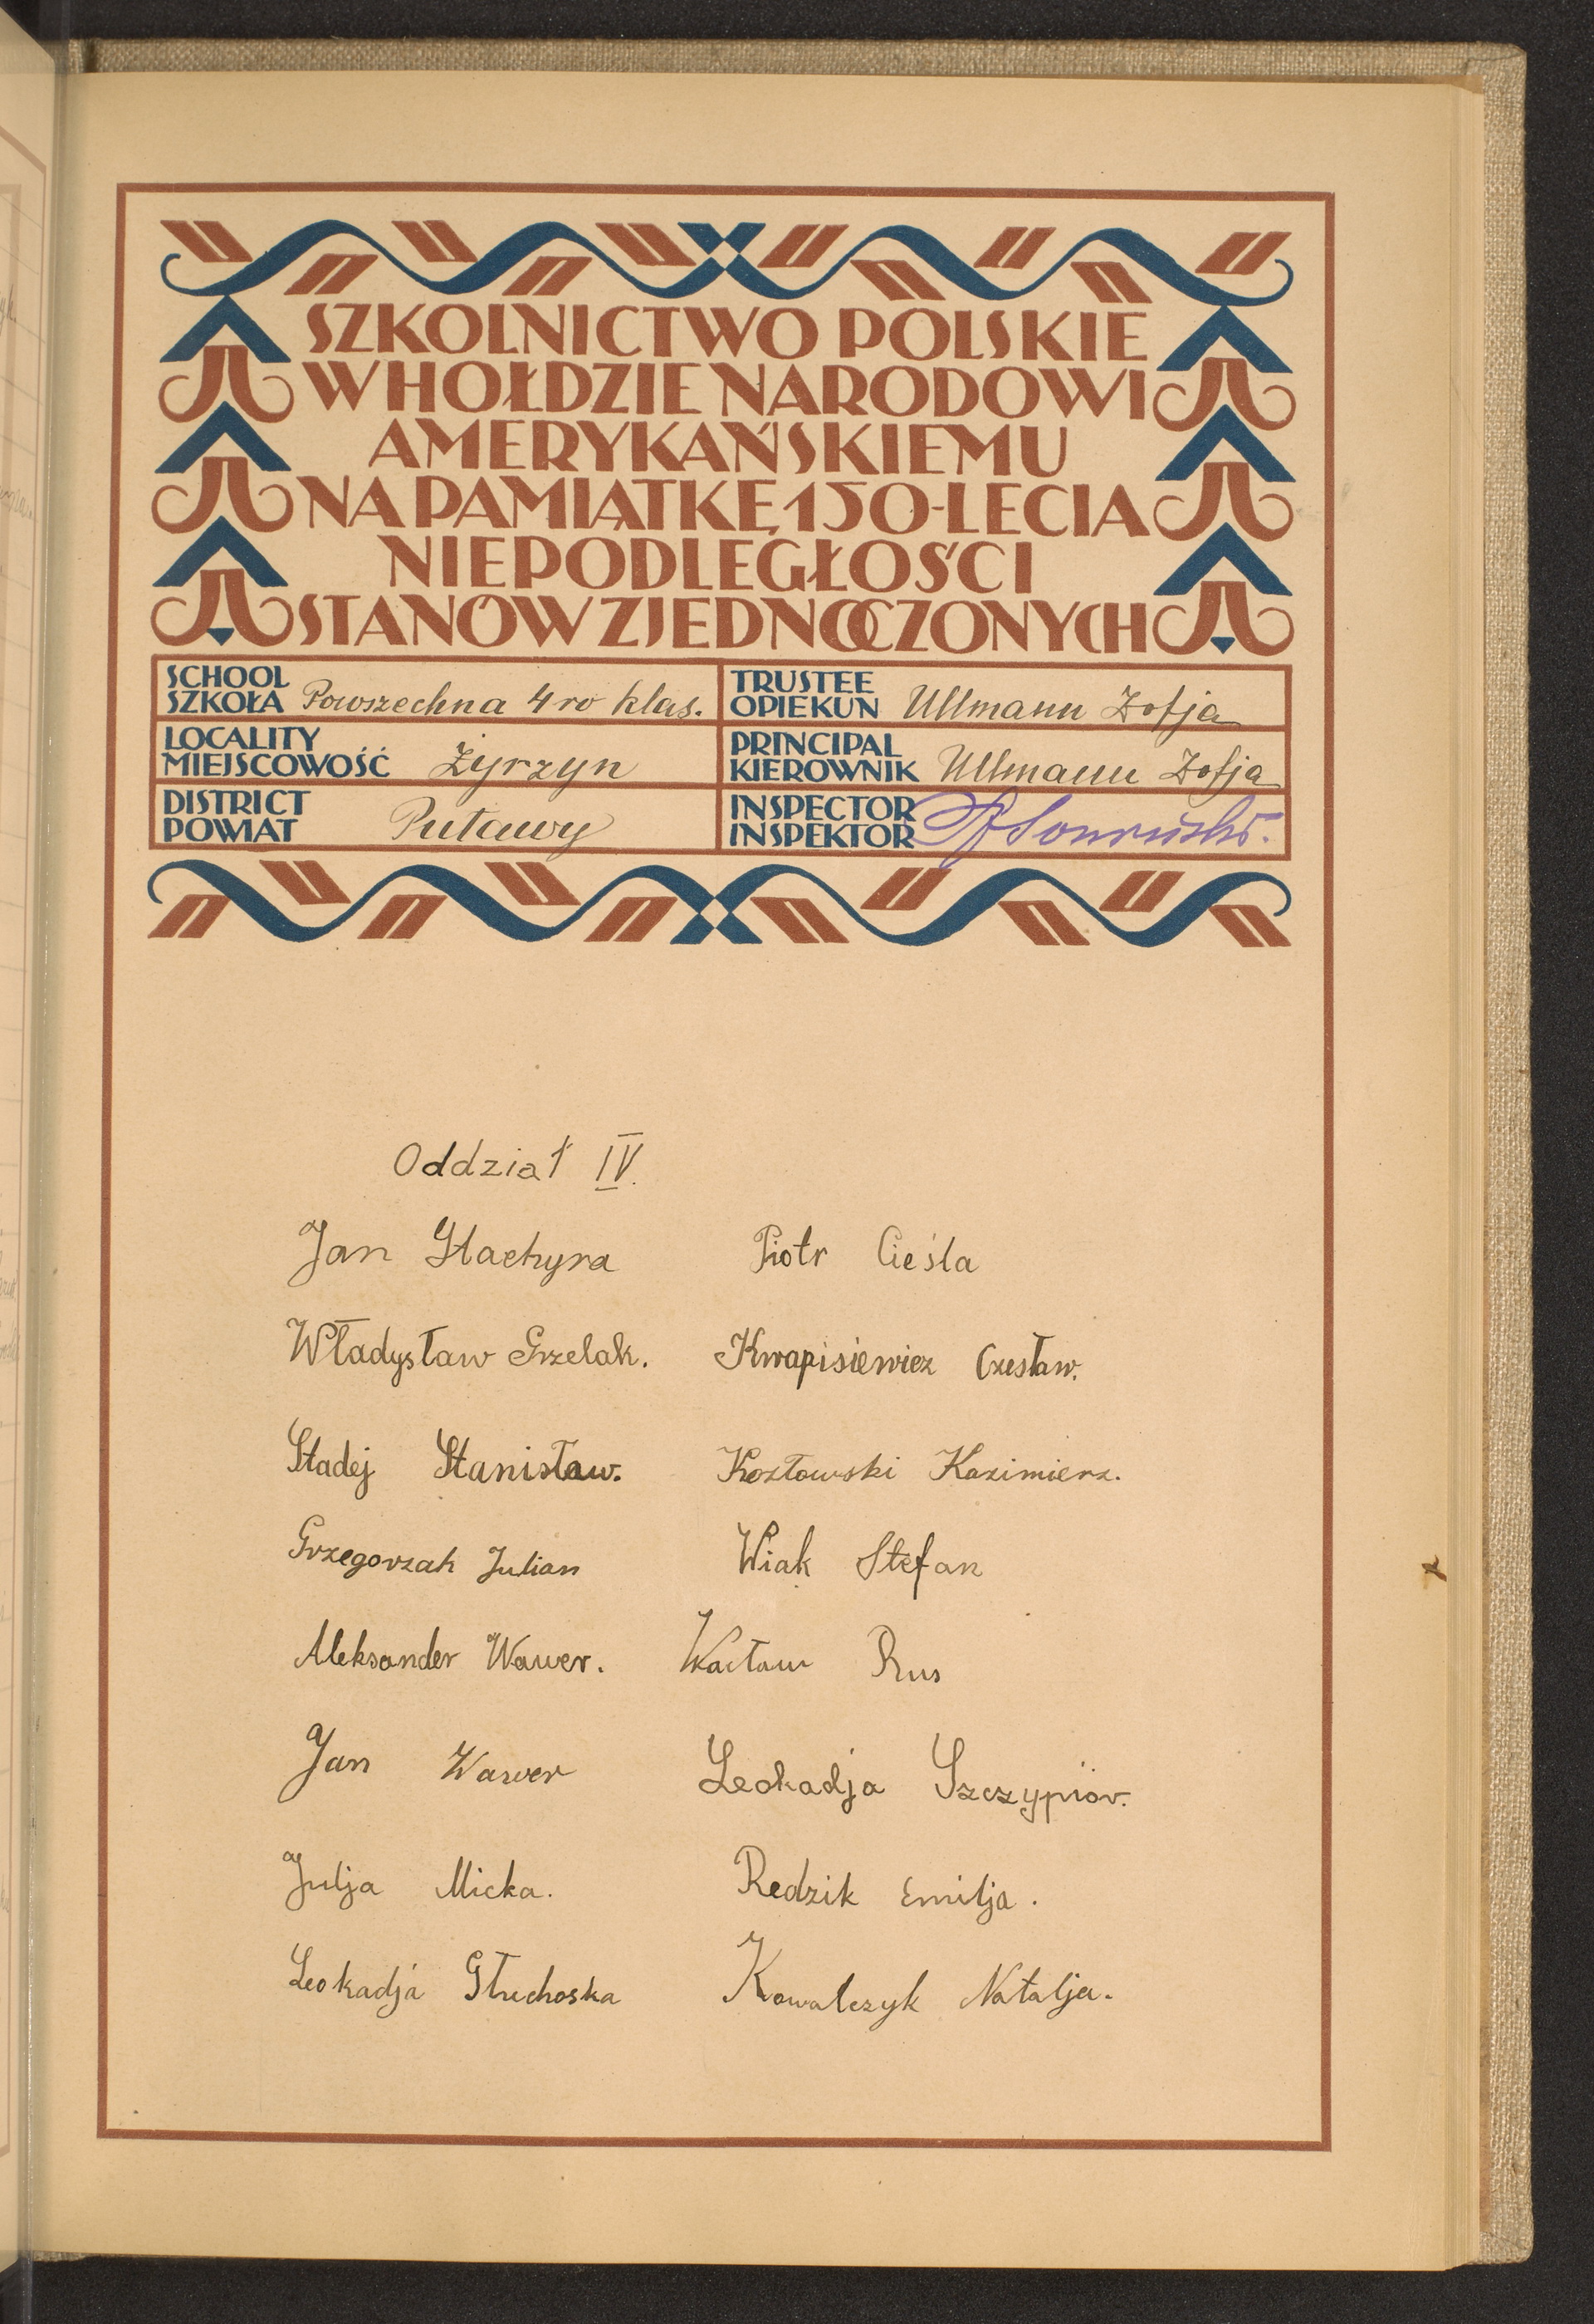 SZKOLNICTWO POLSKIE
W HOŁDZIE NARODOWI
AMERYKAŃSKIEMU
NA PAMIĄTKĘ 150-LECIA
NIEPODLEGŁOŚCI
STANÓW ZJEDNOCZONYCH
SCHOOL
SZKOŁA Powszechna 4 ro klas.
TRUSTEE
OPIEKUN Ullmann Zofja
LOCALITY
MIEJSCOWOŚĆ Żyrzyn
PRINCIPAL
KIEROWNIK Ullmann Zofja
DISTRICT
POWIAT Puławy
INSPECTOR
INSPEKTOR
Oddział IV.
Jan Stachyra Piotr Cieśla
Władysław Grzelak. Kwapisiewicz Czesław.
Stadej Stanisław. Kozłowski Kazimierz.
Grzegorzak Julian Wiak Stefan
Aleksander Wawer. Wacław Rus
Jan Wawer Leokadja Szczypiór.
Julja Micka. Redzik Emilja.
Leokadja Głuchoska Kowalczyk Natalja.